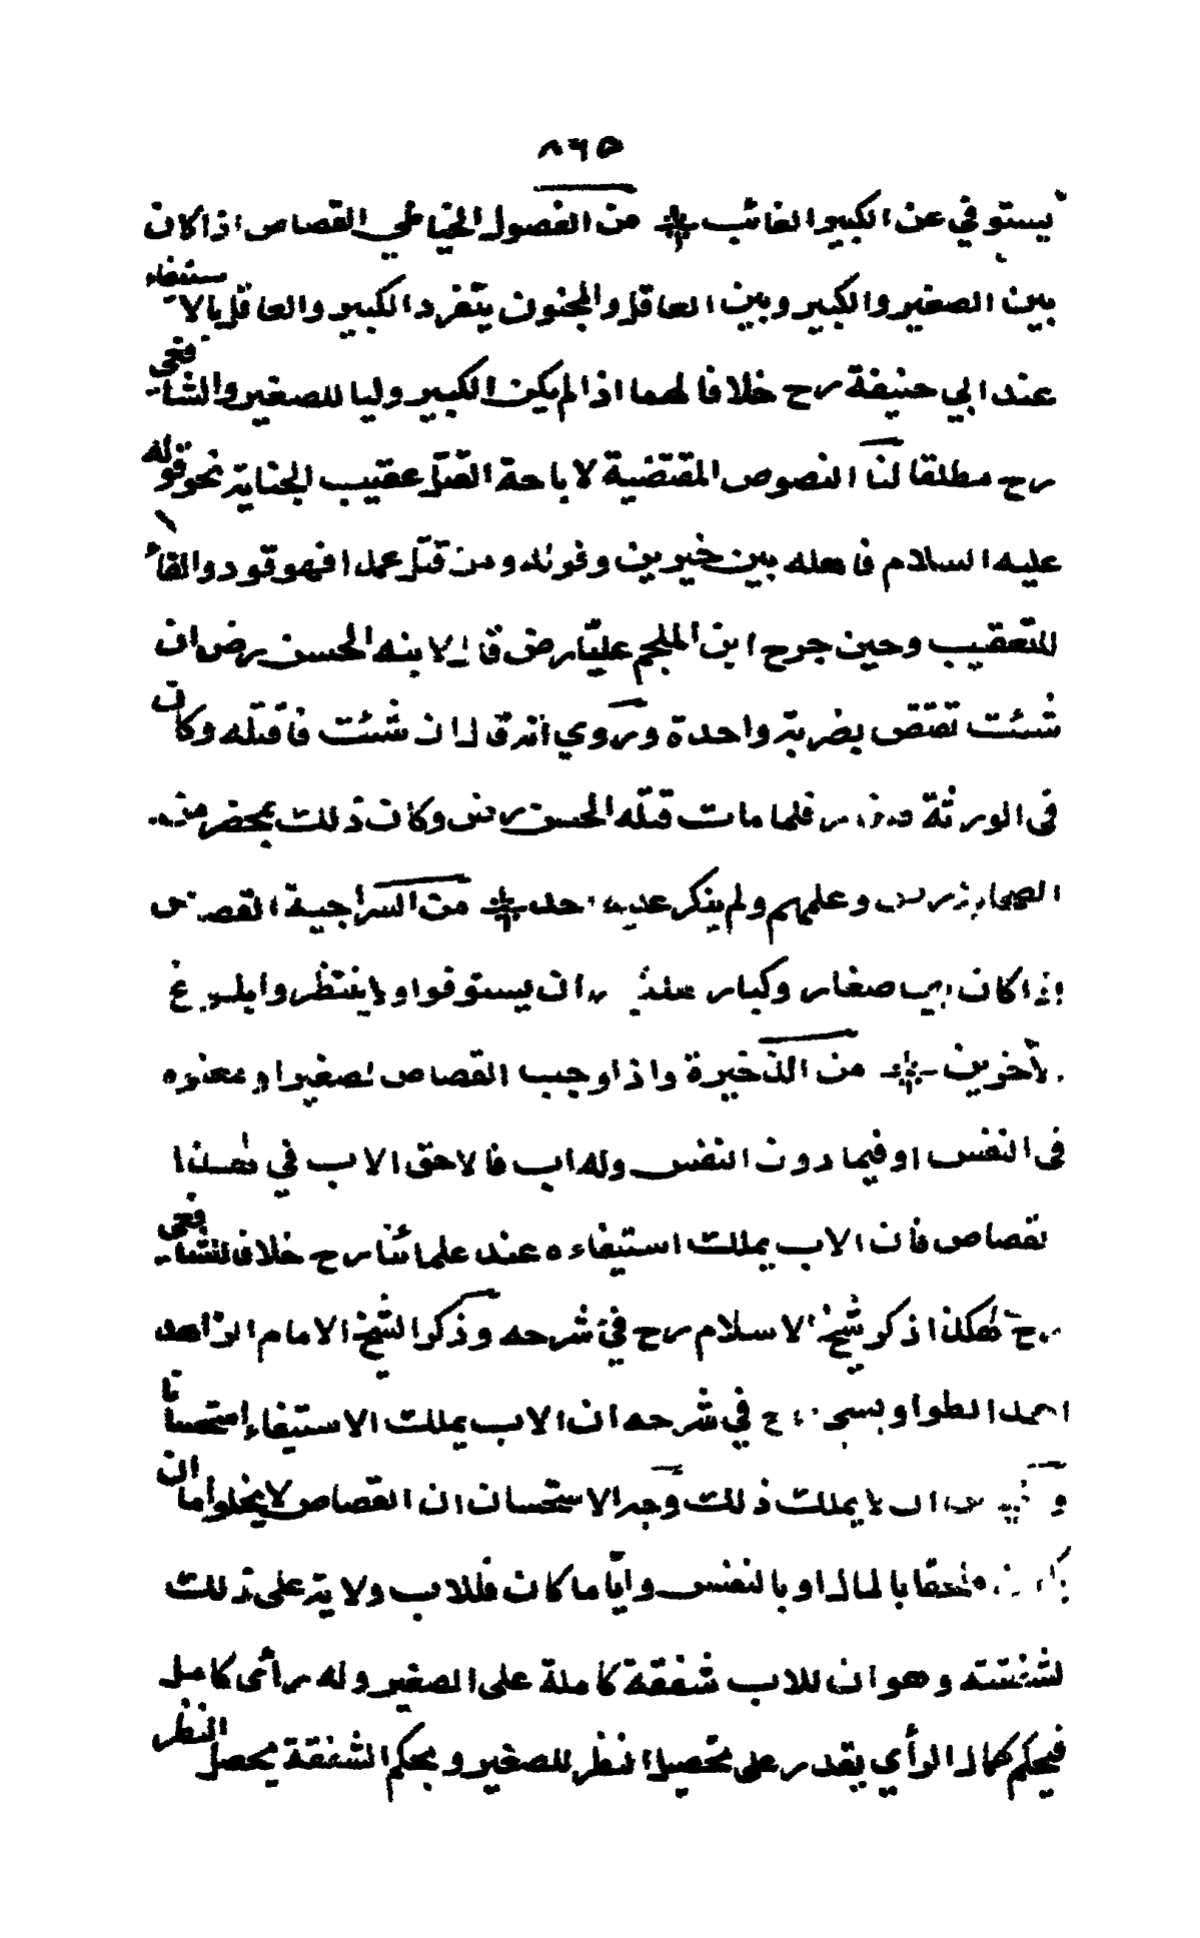 ٨٦٥
يستوفي عن الكبير الغائب من الفصول الخياطي القصاص اذا كان
بين الصغير والكبير وبين العاقل والمجنون يتفرد الكبير والعاقل بالاستيفاء
عند ابي حنيفة رح خلافا لهما اذا لم يكن الكبير وليا للصغير والشافعي
رح مطلقا لنا النصوص المقتضية لاباحة القتل عقيب الجناية نحو قوله
عليه السلام فاهله بين خيرين وقوله ومن قتل عمدا فهو قود والفاء
للتعقيب وحين جرح ابن الملجم عليّا رض قال لابنه الحسن رض ان
شئت تقتص بضربة واحدة وروي انه قال ان شئت فاقتله وكان
فى الورثة فلما مات قتله الحسن رض وكان ذلك بمحضر من
الصحابة وعلمهم ولم ينكر عليه احد من السراجية القصاص
اذا كان صغار وكبار ان يستوفوا ولا ينتظروا بلوغ
الآخرين من الذخيرة واذا وجب القصاص لصغير او معتوه
فى النفس او فيما دون النفس وله اب فالاحق الاب في هذا
لقصاص فان الاب يملك استيفاءه عند علمائنا رح خلافا للشافعي
رح هكذا ذكر شيخ الاسلام رح في شرحه وذكر الشيخ الامام الزاهد
احمد الطواويسي رح في شرحه ان الاب يملك الاستيفاء استحسانا
و ان لا يملك ذلك وجه الاستحسان ان القصاص لا يخلو اما ان
ملحقا بالمال او بالنفس وايّا ما كان فللاب ولاية على ذلك
لشفقته وهو ان للاب شفقة كاملة على الصغير وله رأى كامل
فيحكم كمال الرأي يقدر على تحصيل النظر للصغير وبحكم الشفقة يحصل النظر